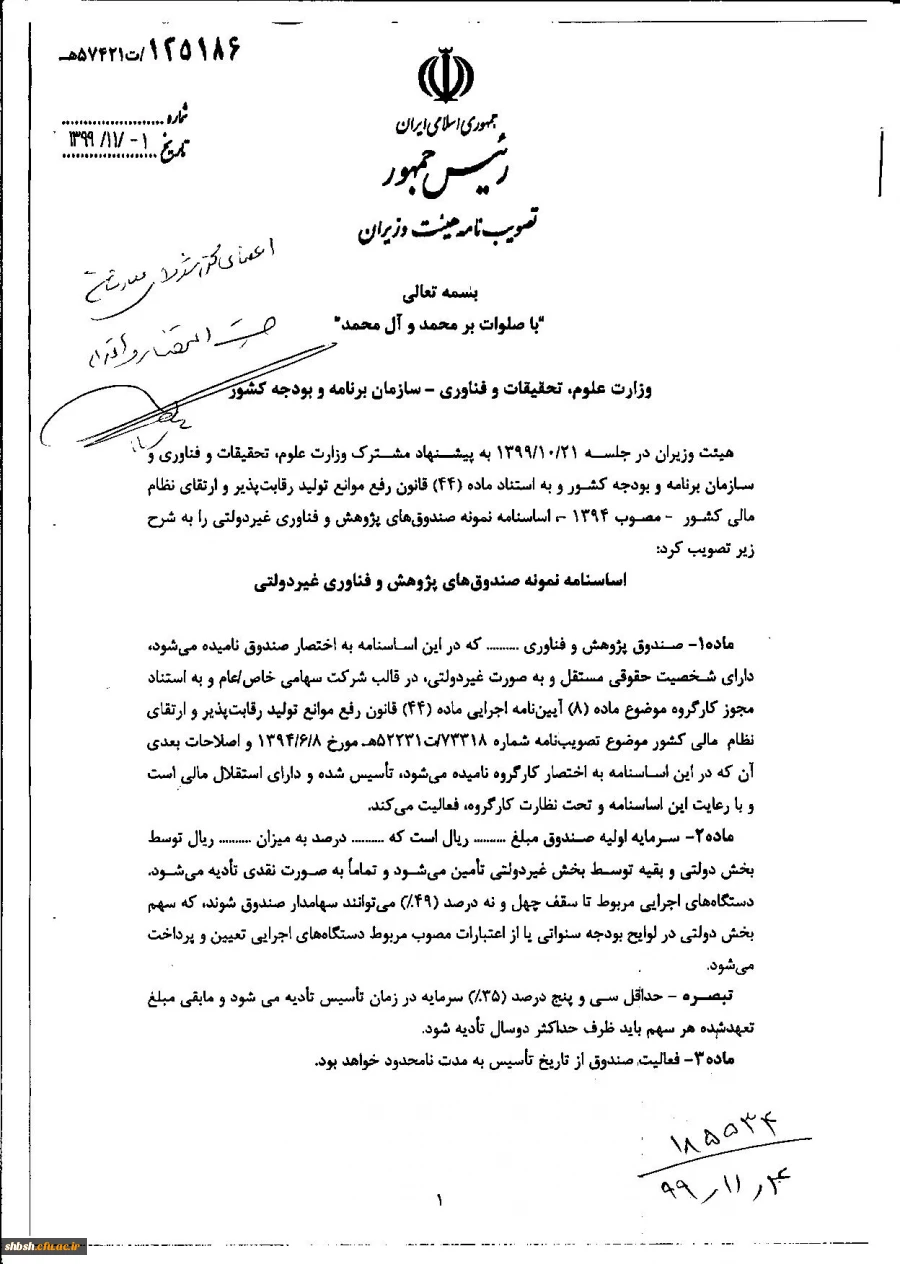 ۱۲۵۱۸۶/ت۵۷۴۲۱هـ
شماره
تاریخ ۱۳۹۹/۱۱/۰۱
جمهوری اسلامی ایران
رئیس جمهور
تصویب نامه هیئت وزیران
اعضای
جهت استحضار و اقدام
بسمه تعالی
"با صلوات بر محمد و آل محمد"
وزارت علوم، تحقیقات و فناوری – سازمان برنامه و بودجه کشور
هیئت وزیران در جلسه ۱۳۹۹/۱۰/۲۱ به پیشنهاد مشترک وزارت علوم، تحقیقات و فناوری و
سازمان برنامه و بودجه کشور و به استناد ماده (۴۴) قانون رفع موانع تولید رقابت‌پذیر و ارتقای نظام
مالی کشور - مصوب ۱۳۹۴ -، اساسنامه نمونه صندوق‌های پژوهش و فناوری غیردولتی را به شرح
زیر تصویب کرد:
اساسنامه نمونه صندوق‌های پژوهش و فناوری غیردولتی
ماده۱- صندوق پژوهش و فناوری .......... که در این اساسنامه به اختصار صندوق نامیده می‌شود،
دارای شخصیت حقوقی مستقل و به صورت غیردولتی، در قالب شرکت سهامی خاص/عام و به استناد
مجوز کارگروه موضوع ماده (۸) آیین‌نامه اجرایی ماده (۴۴) قانون رفع موانع تولید رقابت‌پذیر و ارتقای
نظام مالی کشور موضوع تصویب‌نامه شماره ۷۳۳۱۸/ت۵۲۲۳۱هـ مورخ ۱۳۹۴/۶/۸ و اصلاحات بعدی
آن که در این اساسنامه به اختصار کارگروه نامیده می‌شود، تأسیس شده و دارای استقلال مالی است
و با رعایت این اساسنامه و تحت نظارت کارگروه، فعالیت می‌کند.
ماده۲- سرمایه اولیه صندوق مبلغ .......... ریال است که .......... درصد به میزان .......... ریال توسط
بخش دولتی و بقیه توسط بخش غیردولتی تأمین می‌شود و تماماً به صورت نقدی تأدیه می‌شود.
دستگاه‌های اجرایی مربوط تا سقف چهل و نه درصد (۴۹٪) می‌توانند سهامدار صندوق شوند، که سهم
بخش دولتی در لوایح بودجه سنواتی یا از اعتبارات مصوب مربوط دستگاه‌های اجرایی تعیین و پرداخت
می‌شود.
تبصره – حداقل سی و پنج درصد (۳۵٪) سرمایه در زمان تأسیس تأدیه می شود و مابقی مبلغ
تعهدشده هر سهم باید ظرف حداکثر دوسال تأدیه شود.
ماده۳- فعالیت صندوق از تاریخ تأسیس به مدت نامحدود خواهد بود.
۱۸۵۵۳۴
۹۹/۱۱/۴
۱
shbsh.cfu.ac.ir